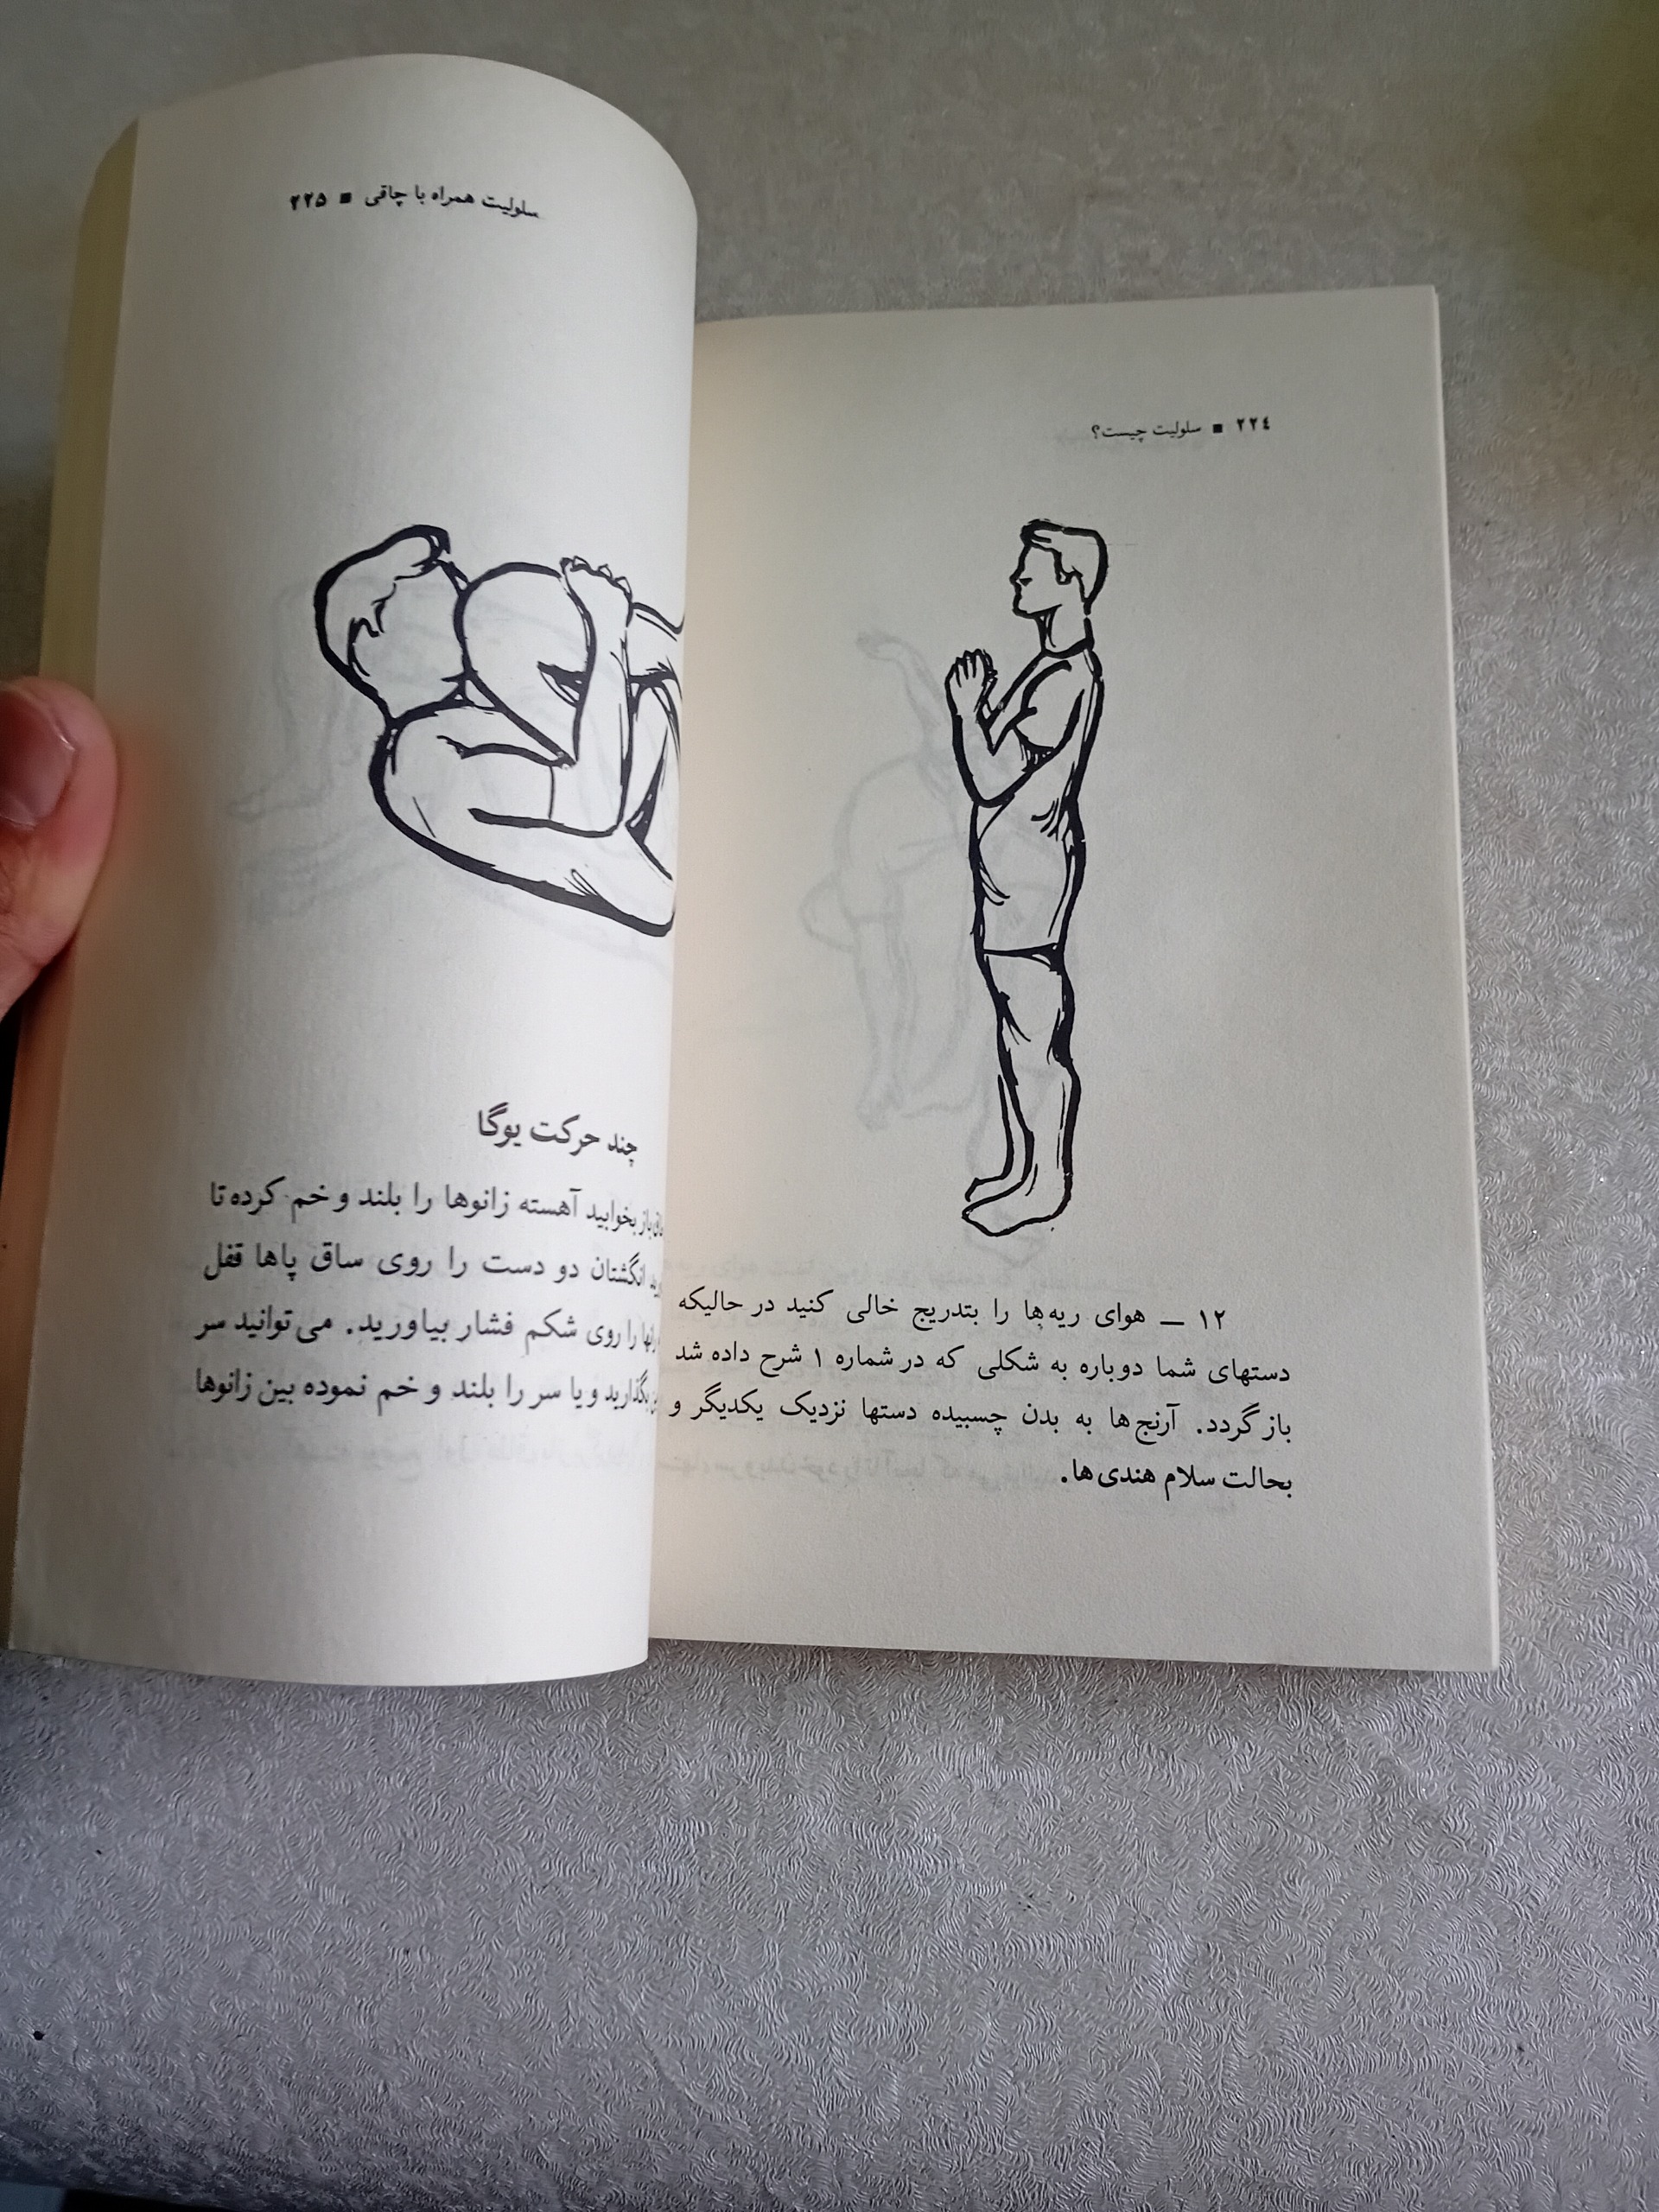 ۲۲٤ ■ سلولیت چیست؟
۱۲ ــ هوای ریه‌ها را بتدریج خالی کنید در حالیکه
دستهای شما دوباره به شکلی که در شماره ۱ شرح داده شد
باز گردد. آرنج‌ها به بدن چسبیده دستها نزدیک یکدیگر و
بحالت سلام هندی‌ها.
سلولیت همراه با چاقی ■ ۲۲۵
چند حرکت یوگا
باز بخوابید آهسته زانوها را بلند و خم کرده تا
انگشتان دو دست را روی ساق پاها قفل
را روی شکم فشار بیاورید. می‌توانید سر
بگذارید و یا سر را بلند و خم نموده بین زانوها